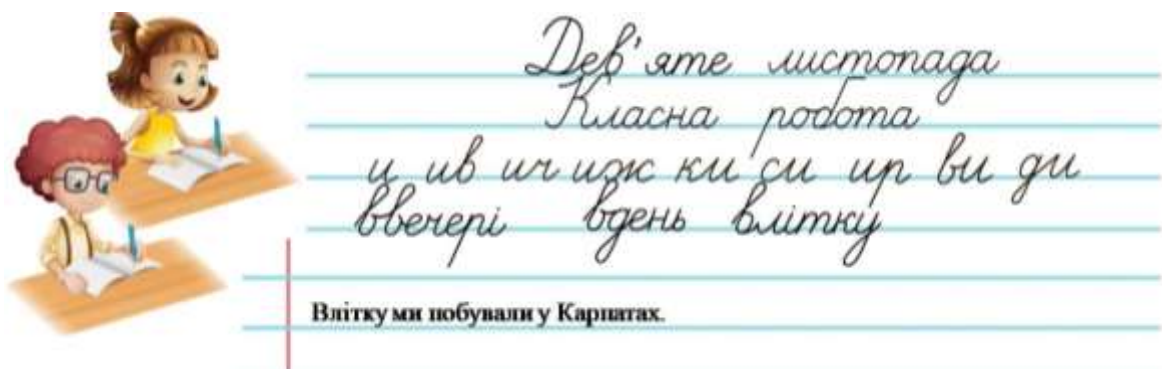 Дев'яте листопада
Класна робота
и ив ич иж ки си ир ви ди
ввечері вдень влітку
Влітку ми побували у Карпатах.